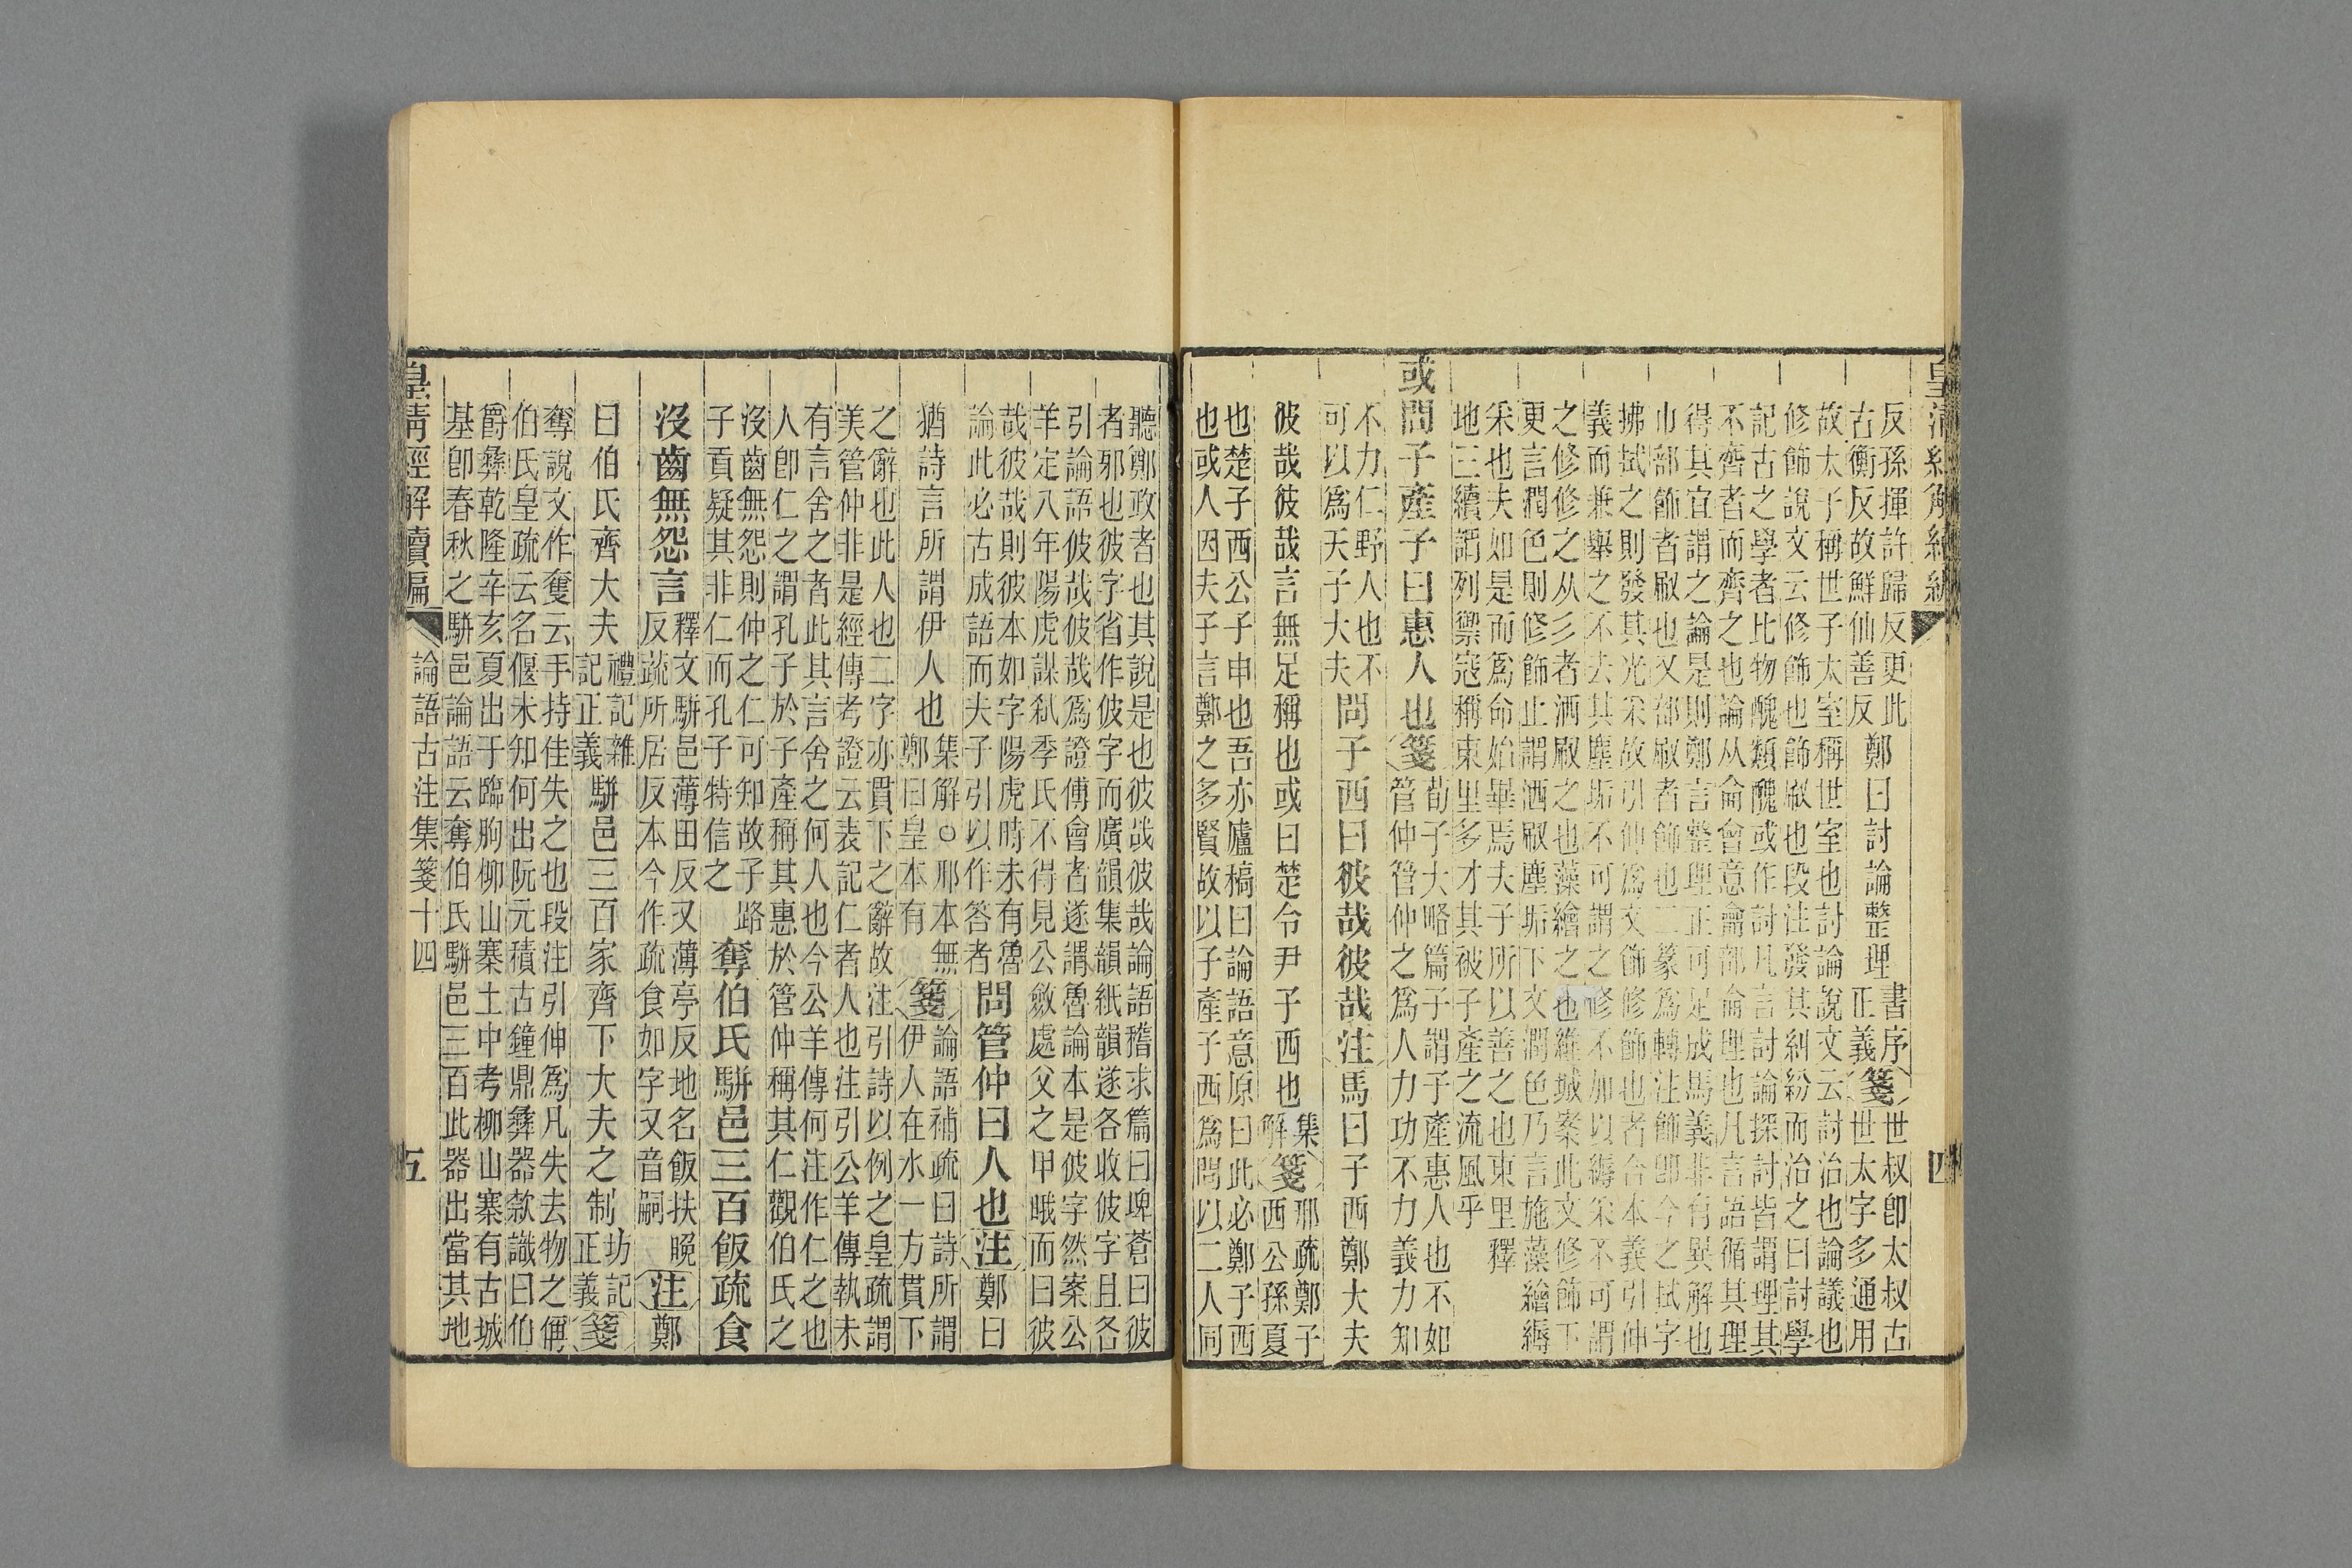 皇清經解續編
四
反孫揮許歸反更此
古衡反故鮮仙善反
鄭曰討論整理
書序
正義
箋
世叔卽太叔古
世太字多通用
故太子稱世子太室稱世室也討論說文云討治也論議也
修飾說文云修飾也飾㕞也段注發其糾紛而治之曰討學
記古之學者比物醜類醜或作討凡言討論探討皆謂理其
不齊者而齊之也論从侖會意侖部侖理也凡言語循其理
得其宜謂之論是則鄭言整理正可足成馬義非有異解也
巾部飾者㕞也又部㕞者飾也二篆爲轉注飾卽今之拭字
拂拭之則發其光采故引伸爲文飾修飾也者合本義引伸
義而兼舉之不去其塵垢不可謂之修不加以縟采不可謂
之修修之从彡者洒㕞之也藻繪之也維城案此文修飾下
更言潤色則修飾止謂洒㕞塵垢下文潤色乃言施藻繪縟
采也夫如是而爲命始畢焉夫子所以善之也東里釋
地三續謂列禦寇稱東里多才其被子產之流風乎
或問子產子曰惠人也
箋
荀子大略篇子謂子產惠人也不如
管仲管仲之爲人力功不力義力知
不力仁野人也不
可以爲天子大夫
問子西曰彼哉彼哉
注
馬曰子西鄭大夫
彼哉彼哉言無足稱也或曰楚令尹子西也
集
解
箋
邢疏鄭子
西公孫夏
也楚子西公子申也吾亦廬稿曰論語意原曰此必鄭子西
也或人因夫子言鄭之多賢故以子產子西爲問以二人同
聽鄭政者也其說是也彼哉彼哉論語稽求篇曰埤蒼曰彼
者邪也彼字省作佊字而廣韻集韻紙韻遂各收彼字且各
引論語彼哉彼哉爲證傅會者遂謂魯論本是彼字然案公
羊定八年陽虎謀弒季氏不得見公斂處父之甲睋而曰彼
哉彼哉則彼本如字陽虎時未有魯
論此必古成語而夫子引以作答者
問管仲曰人也
注
鄭曰
猶詩言所謂伊人也
集解○邢本無
鄭曰皇本有
箋
論語補疏曰詩所謂
伊人在水一方貫下
之辭也此人也二字亦貫下之辭故注引詩以例之皇疏謂
美管仲非是經傳考證云表記仁者人也注引公羊傳執未
有言舍之者此其言舍之何人也今公羊傳何注作仁之也
人卽仁之謂孔子於子產稱其惠於管仲稱其仁觀伯氏之
沒齒無怨則仲之仁可知故子路
子貢疑其非仁而孔子特信之
奪伯氏駢邑三百飯疏食
沒齒無怨言
釋文駢邑薄田反又薄亭反地名飯扶晚
反蔬所居反本今作疏食如字又音嗣
注
鄭
曰伯氏齊大夫
禮記雜
記正義
駢邑三百家齊下大夫之制
坊記
正義
箋
奪說文作奪云手持隹失之也段注引伸爲凡失去物之偁
伯氏皇疏云名偃未知何出阮元積古鐘鼎彝器款識曰伯
爵彝乾隆辛亥夏出于臨朐柳山寨土中考柳山寨有古城
基卽春秋之駢邑論語云奪伯氏駢邑三百此器出當其地
皇清經解續編
論語古注集箋十四
五